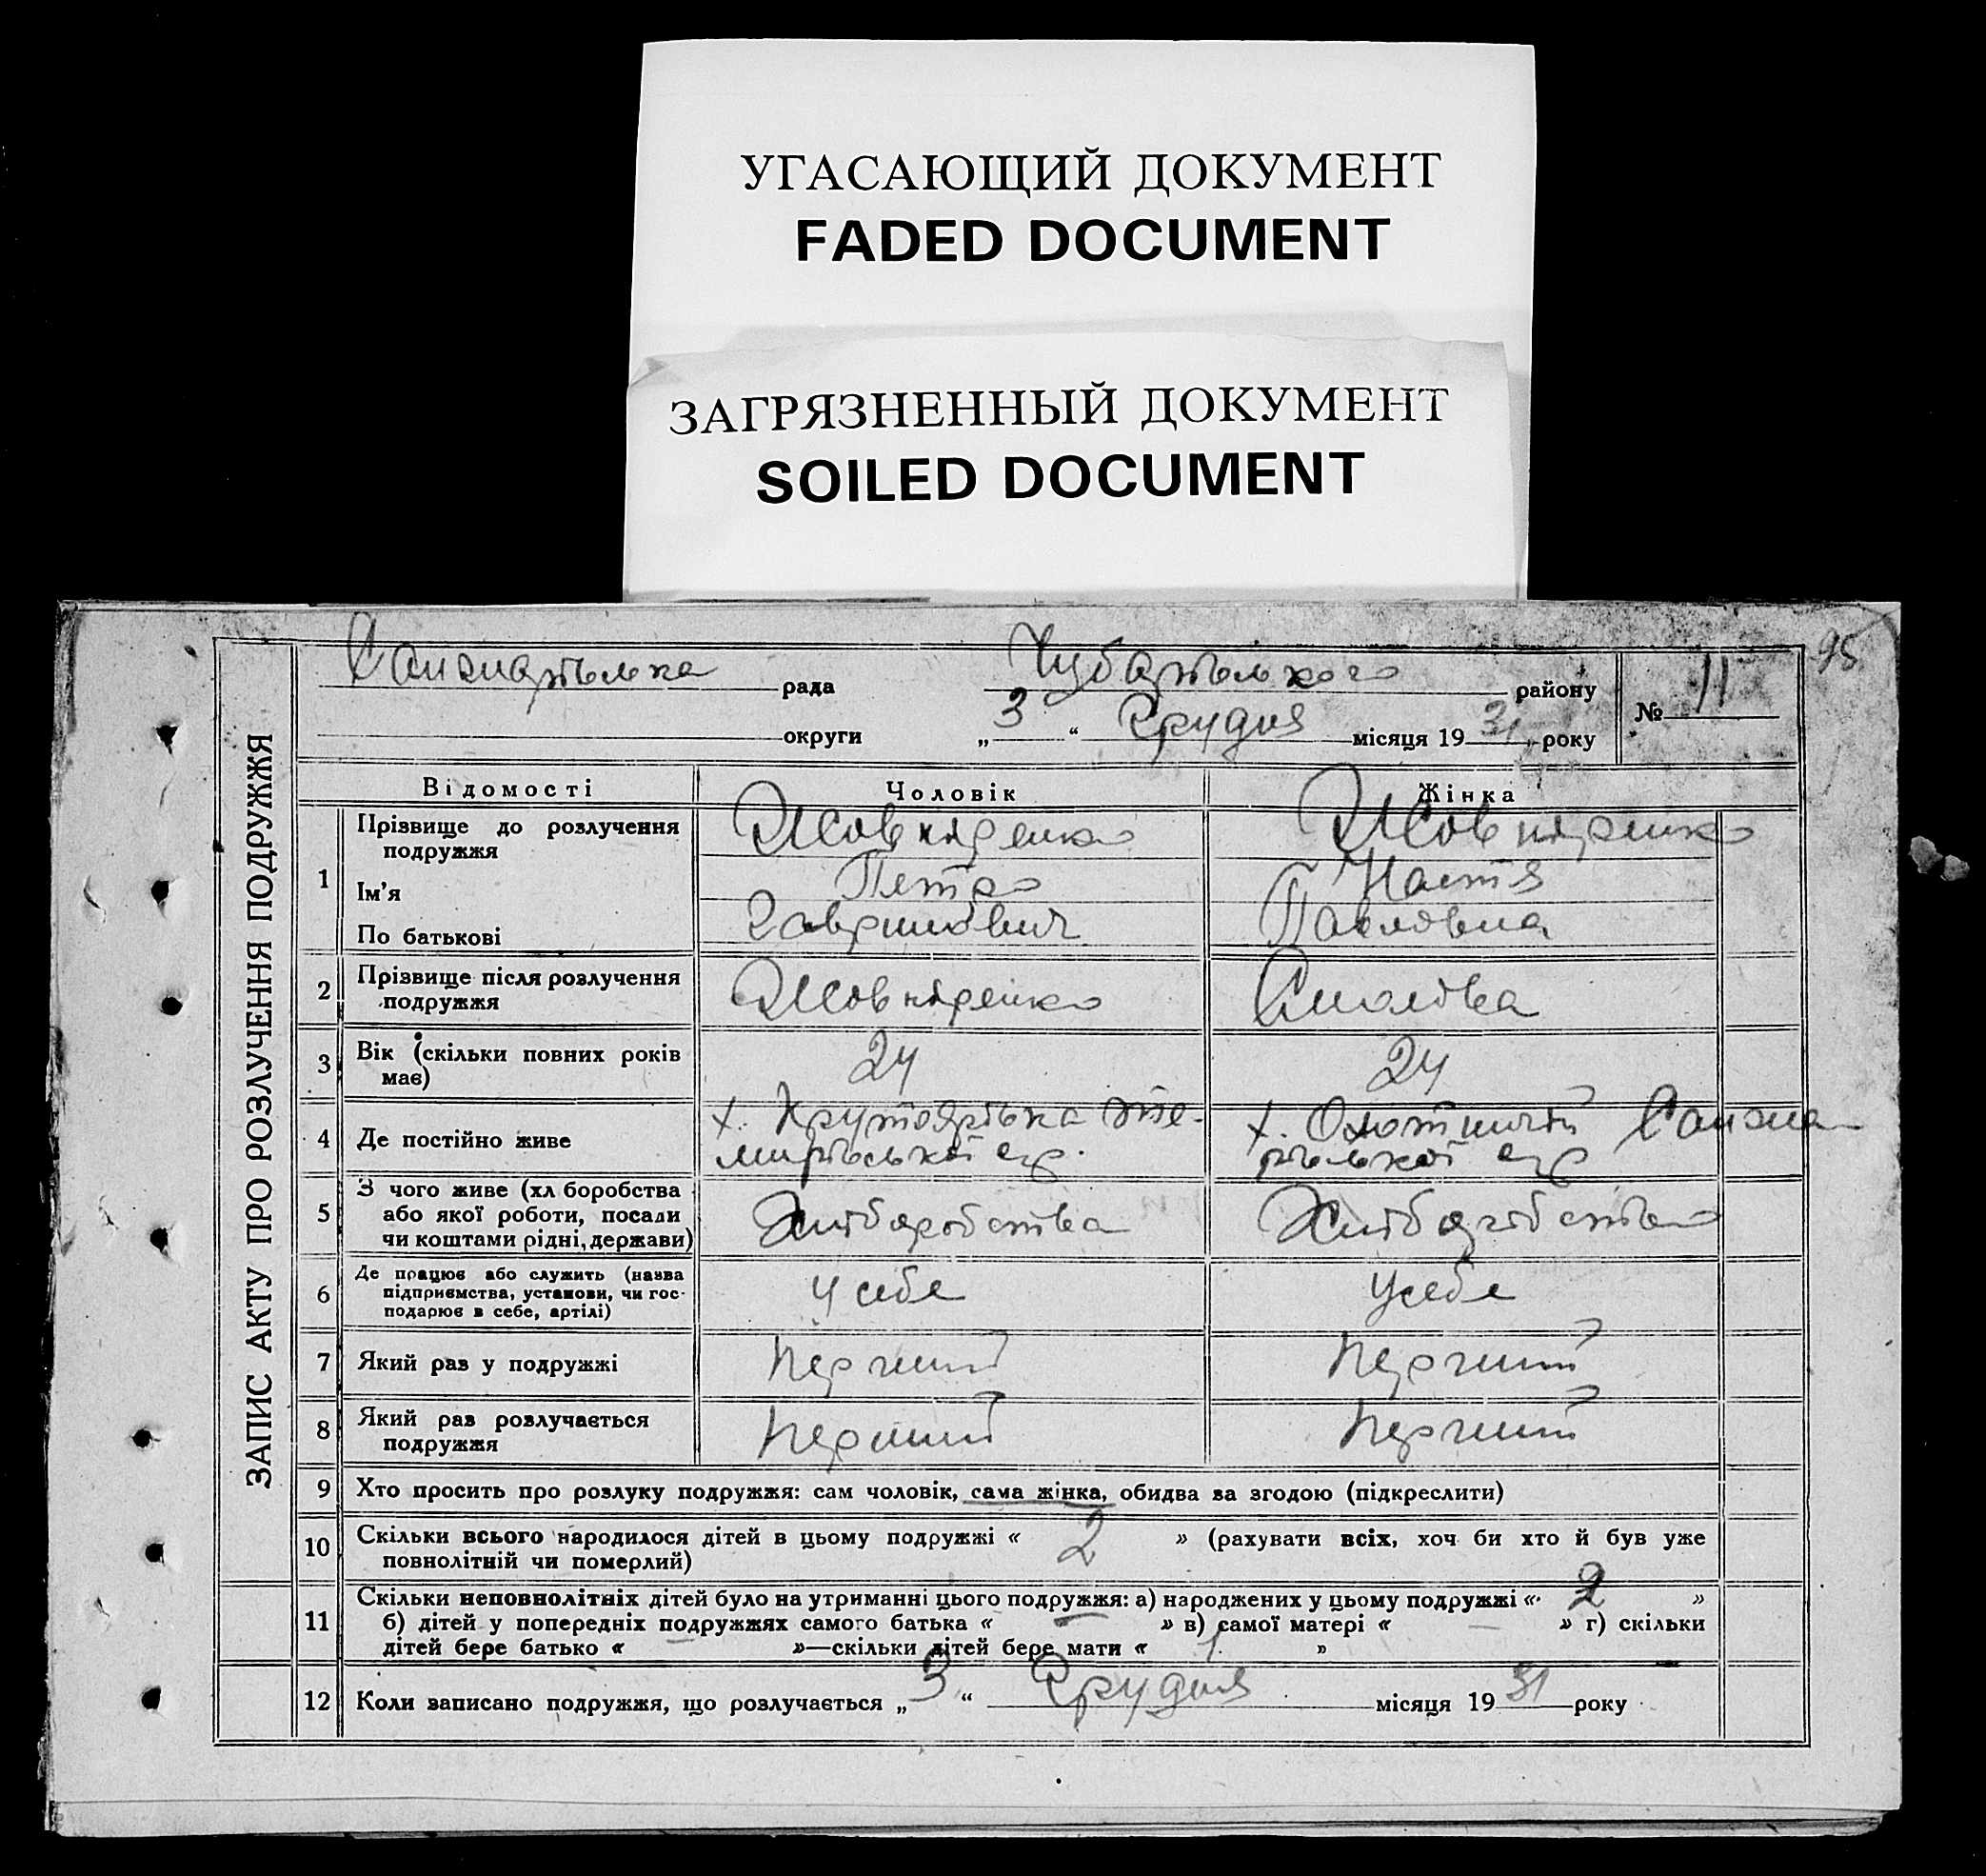 УГАСАЮЩИЙ ДОКУМЕНТ
FADED DOCUMENT
ЗАГРЯЗНЕННЫЙ ДОКУМЕНТ
SOILED DOCUMENT
95
ЗАПИС АКТУ ПРО РОЗЛУЧЕННЯ ПОДРУЖЖЯ
рада Чубарівського району № 11
округи „ 3 “ Грудня місяця 19 31 року
Відомості Чоловік Жінка
1 Прізвище до розлучення
подружжя
Ім'я Петро Настя
По батькові Гаврилович Павловна
2 Прізвище після розлучення
подружжя
3 Вік (скільки повних років 24 24
має)
4 Де постійно живе х. Крутоярівка х.
5 З чого живе (хл боробства
або якої роботи, посади Хліборобства Хліборобства
чи коштами рідні, держави)
6 Де працює або служить (назва
підприємства, установи, чи гос- У себе У себе
подарює в себе, артілі)
7 Який раз у подружжі перший перший
8 Який раз розлучається перший перший
подружжя
9 Хто просить про розлуку подружжя: сам чоловік, сама жінка, обидва за згодою (підкреслити)
10 Скільки всього народилося дітей в цьому подружжі « 2 » (рахувати всіх, хоч би хто й був уже
повнолітній чи померлий)
11 Скільки неповнолітніх дітей було на утриманні цього подружжя: а) народжених у цьому подружжі « 2 »
б) дітей у попередніх подружжях самого батька « — » в) самої матері « — » г) скільки
дітей бере батько « — »—скільки дітей бере мати « 1 »
12 Коли записано подружжя, що розлучається „ 3 “ Грудня місяця 19 31 року